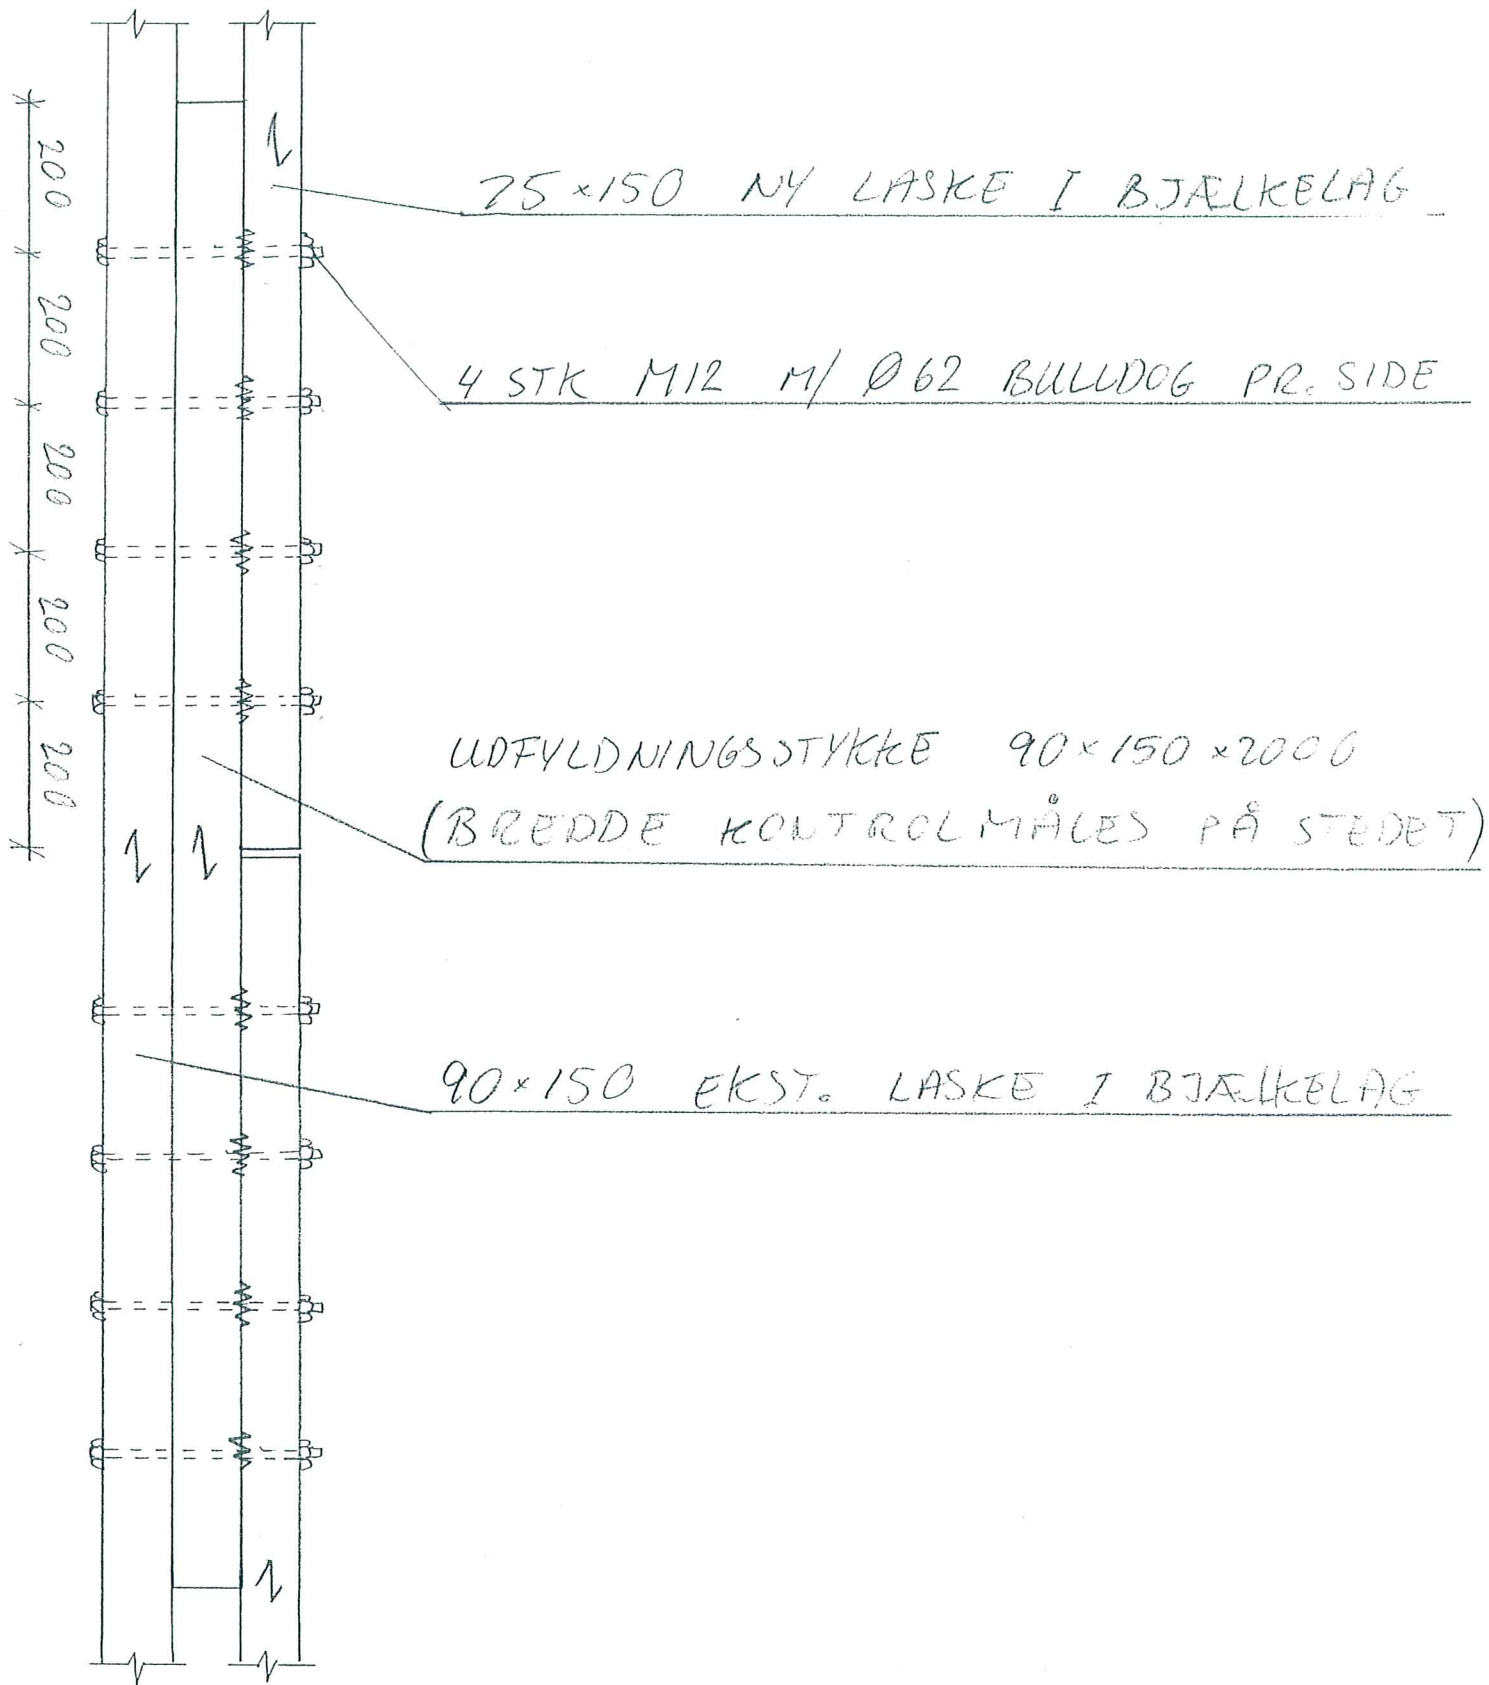 200
200
200
200
200
75×150 NY LASKE I BJÆLKELAG
4 STK M12 M/ Ø62 BULLDOG PR. SIDE
UDFYLDNINGSSTYKKE 90×150×2000
(BREDDE KONTROLMÅLES PÅ STEDET)
90×150 EKST. LASKE I BJÆLKELAG